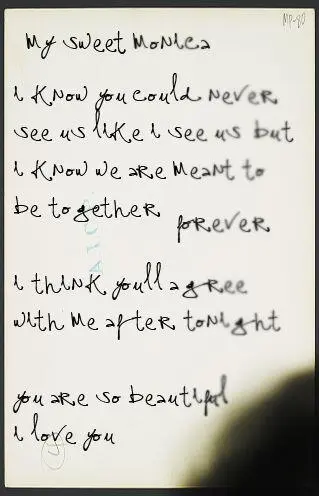 MP-80
My sweet Monica
i know you could never
see us like i see us but
i know we are meant to
be together
forever
i think you'll agree
with me after tonight
you are so beautiful
i love you